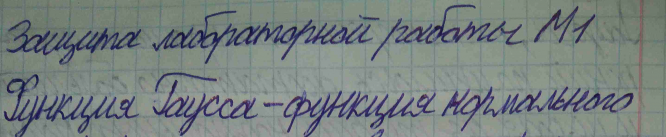 Защита лабораторной работы М1
Функция Гаусса – функция нормального